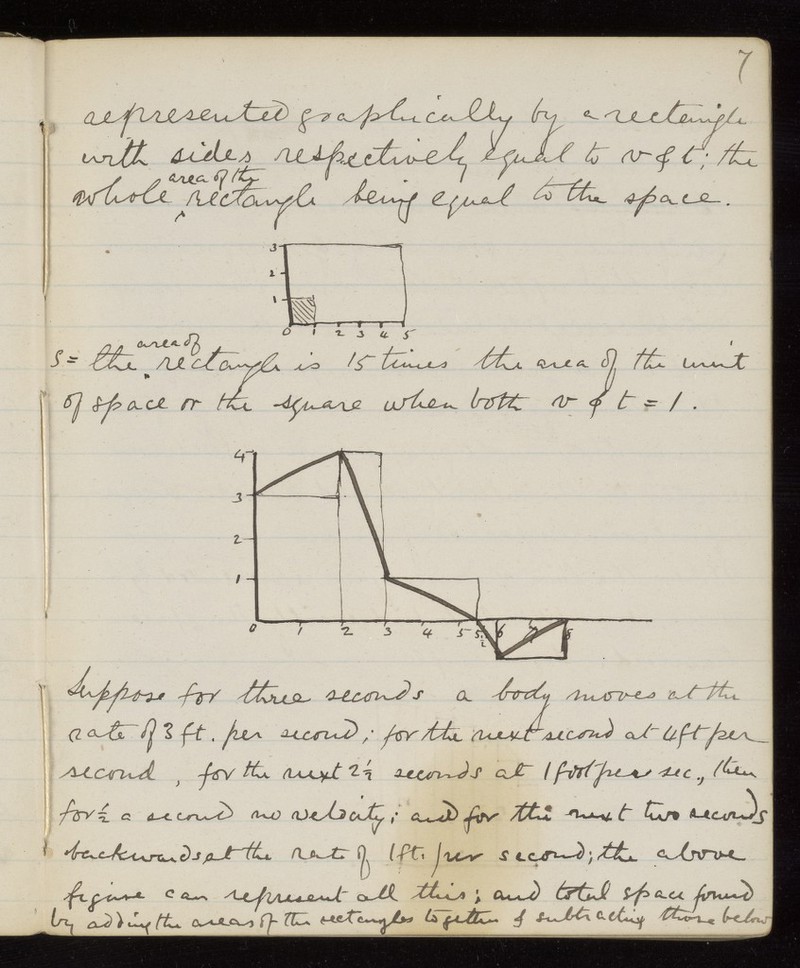 7
represented graphically by a rectangle
with sides respectively equal to v & t; the
area of the
whole rectangle being equal to the space.
3
2
1
0 1 2 3 4 5
area of
S = the rectangle is 15 times the area of the unit
of space or the square when both v & t = 1.
4
3
2
1
0 1 2 3 4 5 5½ 6 7 8
Suppose for three seconds a body moves at the
rate of 3 ft. per second; for the next second at 4 ft per
second, for the next 2½ seconds at 1 foot per sec., then
for ½ a second no velocity; and for the next two seconds
backwards at the rate of 1 ft. per second; the above
figure can represent all this; and total space found
by adding the areas of the rectangles together & subtracting those below